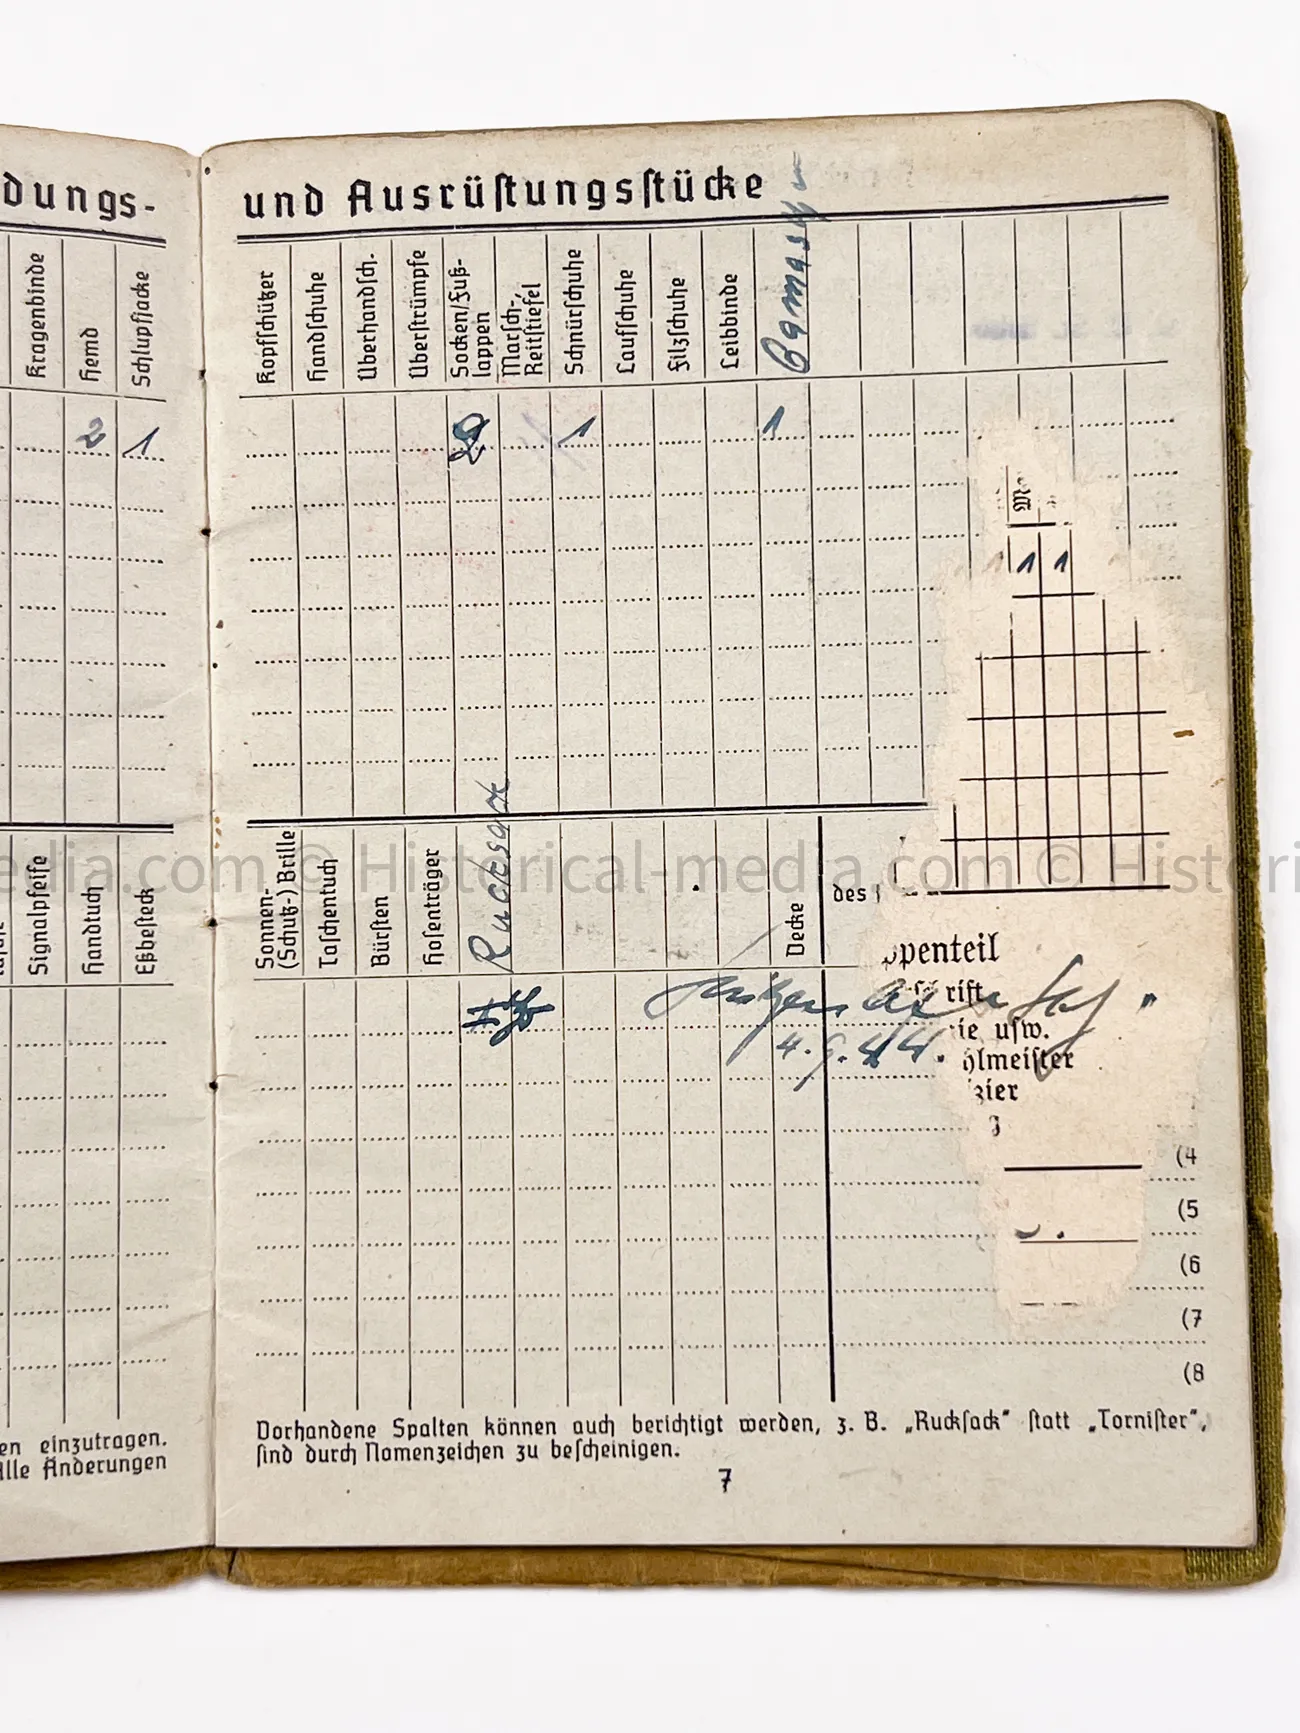 dungs-
Kragenbinde
Hemd
Schlupfjacke
2
1
und Ausrüstungsstücke
Kopfschützer
Handschuhe
Überhandsch.
Überstrümpfe
Socken/Fuß-
lappen
Marsch-,
Reitstiefel
Schnürschuhe
Laufschuhe
Filzschuhe
Leibbinde
Gamasch
2
1
1
1 1
Signalpfeife
Handtuch
Eßbesteck
Sonnen-
(Schutz-) Brille
Taschentuch
Bürsten
Hosenträger
Rucksack
Decke
des
ppenteil
rift
ie usw.
hlmeister
zier
4.9.44.
(4
(5
(6
(7
(8
en einzutragen.
Alle Änderungen
Vorhandene Spalten können auch berichtigt werden, z. B. „Rucksack“ statt „Tornister“,
sind durch Namenzeichen zu bescheinigen.
7
edia.com © Historical-media.com © Histori